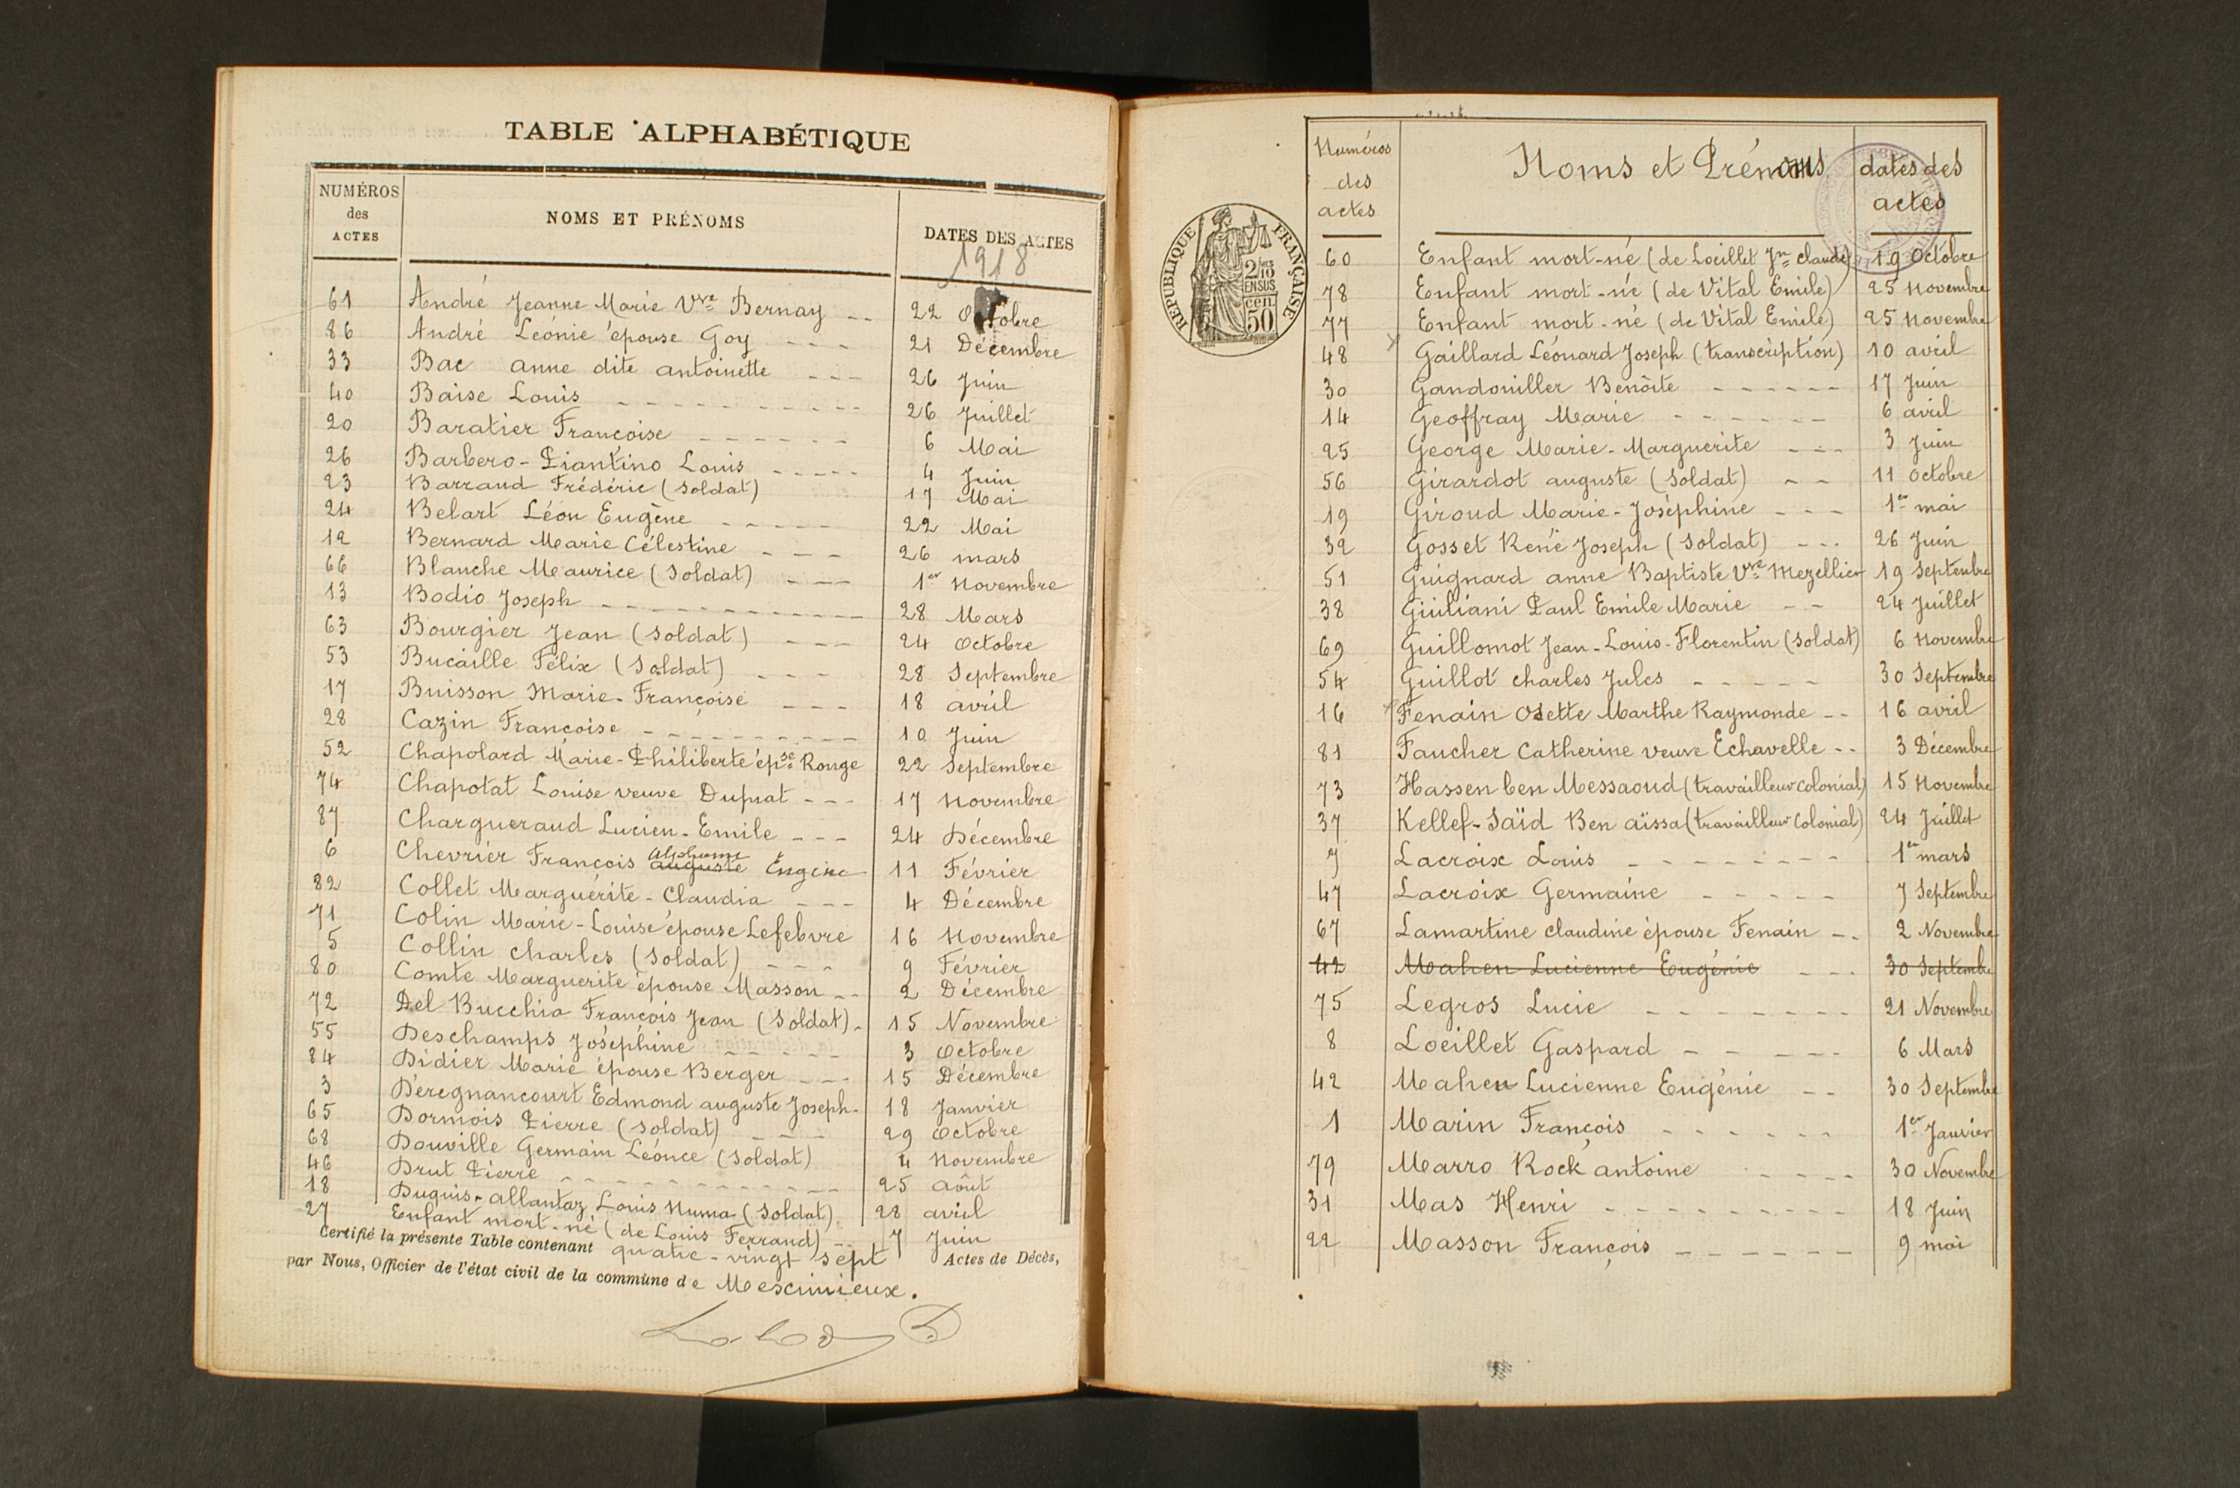 TABLE ALPHABÉTIQUE
NUMÉROS des ACTES NOMS ET PRÉNOMS DATES DES ACTES
1918
61 André Jeanne Marie Vve Bernay -- 22 Octobre
86 André Léonie épouse Goy --- 21 Décembre
33 Bac anne dite antoinette --- 26 Juin
40 Baise Louis --- 26 Juillet
20 Baratier Françoise --- 6 Mai
26 Barbero-Piantino Louis --- 4 Juin
23 Barraud Frédéric (Soldat) 17 Mai
24 Belart Léon Eugène --- 22 Mai
12 Bernard Marie Célestine --- 26 mars
66 Blanche Maurice (Soldat) --- 1er Novembre
13 Bodio Joseph --- 28 Mars
63 Bourgier Jean (Soldat) --- 24 Octobre
53 Bucaille Félix (Soldat) --- 28 Septembre
17 Buisson Marie-Françoise --- 18 avril
28 Cazin Françoise --- 10 Juin
52 Chapolard Marie-Philiberte épse Rouge 22 Septembre
74 Chapotat Louise veuve Duprat --- 17 Novembre
87 Chargueraud Lucien-Emile --- 24 Décembre
6 Chevrier François auguste Alphonse Eugène 11 Février
82 Collet Marguérite-Claudia --- 4 Décembre
71 Colin Marie-Louise épouse Lefebvre 16 Novembre
5 Collin Charles (Soldat) --- 9 Février
80 Comte Marguerite épouse Masson -- 2 Décembre
72 Del Bucchia François Jean (Soldat) - 15 Novembre
55 Deschamps Joséphine --- 3 Octobre
84 Didier Marie épouse Berger --- 15 Décembre
3 Déregnancourt Edmond auguste Joseph - 18 Janvier
65 Dormois Pierre (Soldat) --- 29 Octobre
68 Douville Germain Léonce (Soldat) 4 Novembre
46 Drut Pierre --- 25 août
18 Duguis-allantaz Louis Numa (Soldat) 28 avril
27 Enfant mort-né (de Louis Ferrand) -- 7 Juin
Certifié la présente Table contenant quatre-vingt sept Actes de Décès,
par Nous, Officier de l'état civil de la commune de Meximieux.
Numéros des actes Noms et Prénoms dates des actes
RÉPUBLIQUE FRANÇAISE
2/10 EN SUS
50 cen
60 Enfant mort-né (de Loeillet Jn Claude) 19 Octobre
78 Enfant mort-né (de Vital Emile) 25 Novembre
77 Enfant mort-né (de Vital Emile) 25 Novembre
48 Gaillard Léonard Joseph (transcription) 10 avril
30 Gandouiller Benoîte --- 17 Juin
14 Geoffray Marie --- 6 avril
25 George Marie-Marguerite --- 3 Juin
56 Girardot auguste (Soldat) -- 11 Octobre
19 Giroud Marie-Joséphine --- 1er mai
32 Gosset René Joseph (Soldat) --- 26 Juin
51 Guignard anne Baptiste Vve Mezellier 19 Septembre
38 Giuliani Paul Emile Marie -- 24 Juillet
69 Guillomot Jean-Louis-Florentin (Soldat) 6 Novembre
54 Guillot charles Jules --- 30 Septembre
16 Fenain Odette Marthe Raymonde -- 16 avril
81 Faucher Catherine veuve Echavelle -- 3 Décembre
73 Hassen ben Messaoud (travailleur Colonial) 15 Novembre
37 Kellef-Saïd Ben aïssa (travailleur Colonial) 24 Juillet
7 Lacroix Louis --- 1er mars
47 Lacroix Germaine --- 7 Septembre
67 Lamartine claudine épouse Fenain -- 2 Novembre
42 Mahen Lucienne Eugénie --- 30 Septembre
75 Legros Lucie --- 21 Novembre
8 Loeillet Gaspard --- 6 Mars
42 Maheu Lucienne Eugénie -- 30 Septembre
1 Marin François --- 1er Janvier
79 Marro Rock antoine --- 30 Novembre
31 Mas Henri --- 18 Juin
22 Masson François --- 9 mai